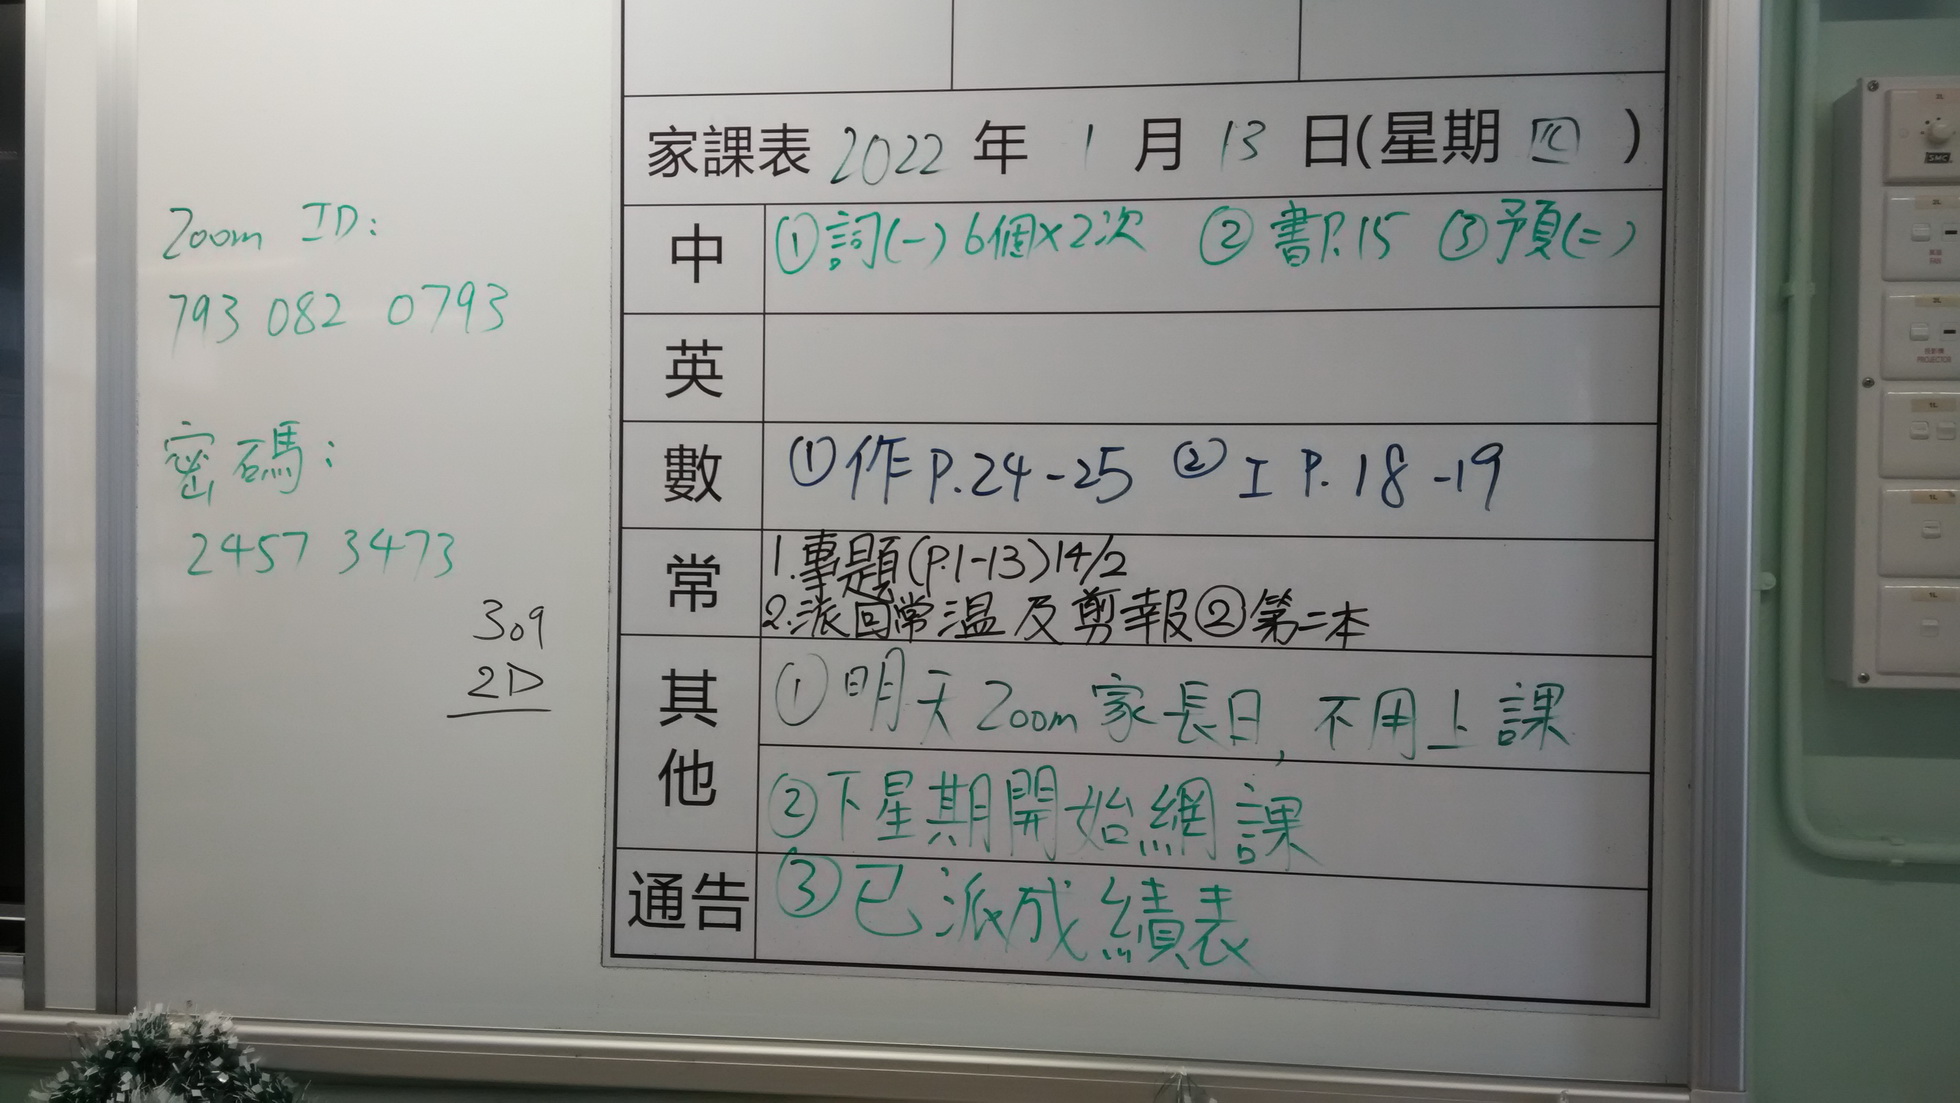 Zoom ID:
793 082 0793
密碼:
2457 3473
309
2D
家課表 2022 年 1 月 13 日(星期 四 )
中 ①詞(一)6個×2次 ②書P.15 ③預(二)
英
數 ①作P.24-25 ②工P.18-19
常 1.專題(P.1-13)14/2
2.派回常溫及剪報②第二本
其他 ①明天Zoom家長日,不用上課
②下星期開始網課
通告 ③已派成績表
SMC
PROJECTOR